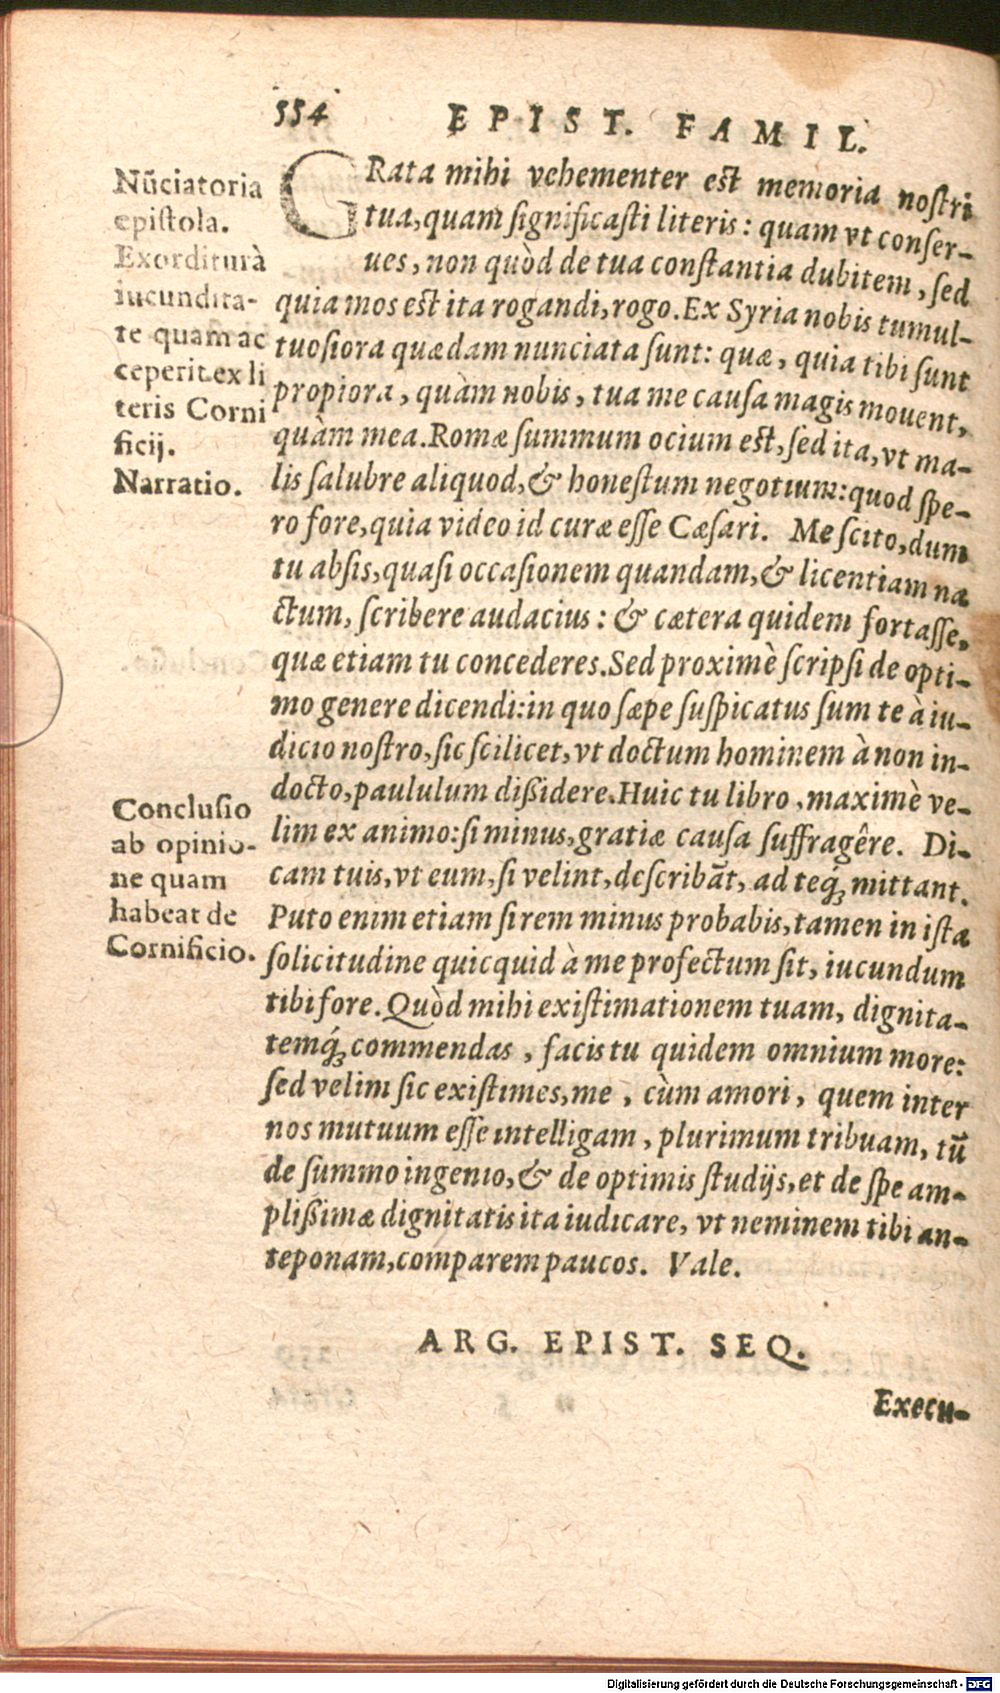 554
EPIST. FAMIL.
Nūciatoria
epistola.
Exorditurà
iucundita-
te quam ac
ceperit ex li
teris Corni
ficij.
Narratio.
GRata mihi vehementer est memoria nostri
tua, quam significasti literis: quam vt conser-
ues, non quòd de tua constantia dubitem, sed
quia mos est ita rogandi, rogo. Ex Syria nobis tumul-
tuosiora quædam nunciata sunt: quæ, quia tibi sunt
propiora, quàm nobis, tua me causa magis mouent,
quàm mea. Romæ summum ocium est, sed ita, vt ma-
lis salubre aliquod, & honestum negotium: quod spe-
ro fore, quia video id curæ esse Cæsari. Me scito, dum
tu absis, quasi occasionem quandam, & licentiam na
ctum, scribere audacius: & cætera quidem fortasse,
quæ etiam tu concederes. Sed proximè scripsi de opti-
mo genere dicendi: in quo sæpe suspicatus sum te à iu-
dicio nostro, sic scilicet, vt doctum hominem à non in-
docto, paululum dißidere. Huic tu libro, maximè ve-
lim ex animo: si minus, gratiæ causa suffragêre. Di-
cam tuis, vt eum, si velint, describāt, ad teq́ꝫ mittant.
Puto enim etiam si rem minus probabis, tamen in ista
solicitudine quicquid à me profectum sit, iucundum
tibi fore. Quòd mihi existimationem tuam, dignita-
temq́ꝫ commendas, facis tu quidem omnium more:
sed velim sic existimes, me, cùm amori, quem inter
nos mutuum esse intelligam, plurimum tribuam, tū
de summo ingenio, & de optimis studijs, et de spe am-
plißimæ dignitatis ita iudicare, vt neminem tibi an-
teponam, comparem paucos. Vale.
Conclusio
ab opinio-
ne quam
habeat de
Cornificio.
ARG. EPIST. SEQ.
Execu-
Digitalisierung gefördert durch die Deutsche Forschungsgemeinschaft - DFG